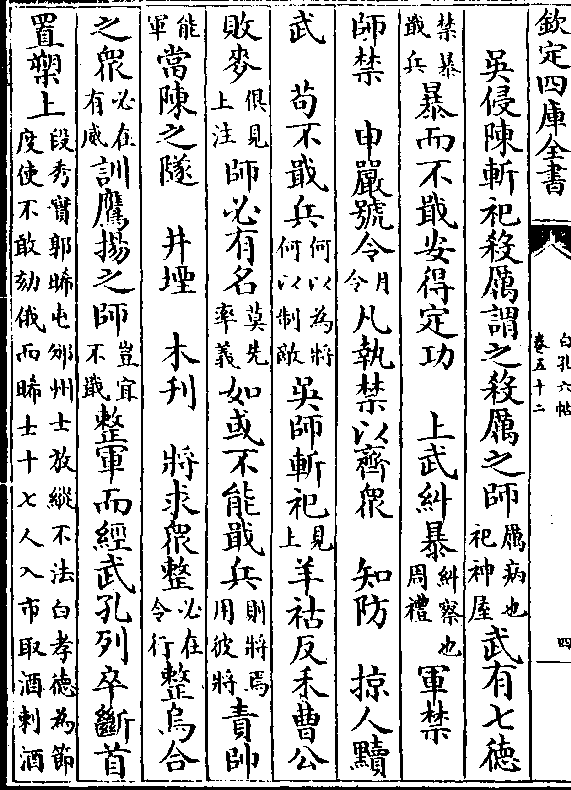 欽定四庫全書 白孔六帖 卷五十二 四
吳侵陳斬祀殺厲謂之殺厲之師 厲病也祀神屋 武有七德
禁暴戢兵 暴而不戢安得定功 上武糾暴 糾察也周禮 軍禁
師禁 申嚴號令 月令 凡執禁以齊衆 知防 掠人黷
武 苟不戢兵 何以為將何以制敵 吳師斬祀 見上 羊祜反禾曹公
敗麥 俱見上注 師必有名 莫先率義 如或不能戢兵 則將焉用彼將 責帥
能軍 當陳之隧 井堙 木刋 將求衆整 必在令行 整烏合
之衆 必在有威 訓鷹揚之師 豈宜不戢 整軍而經武孔列卒斷首
置槊上 段秀實郭晞屯邠州士放縱不法白孝德為節度使不敢劾俄而晞士十七人入市取酒刺酒